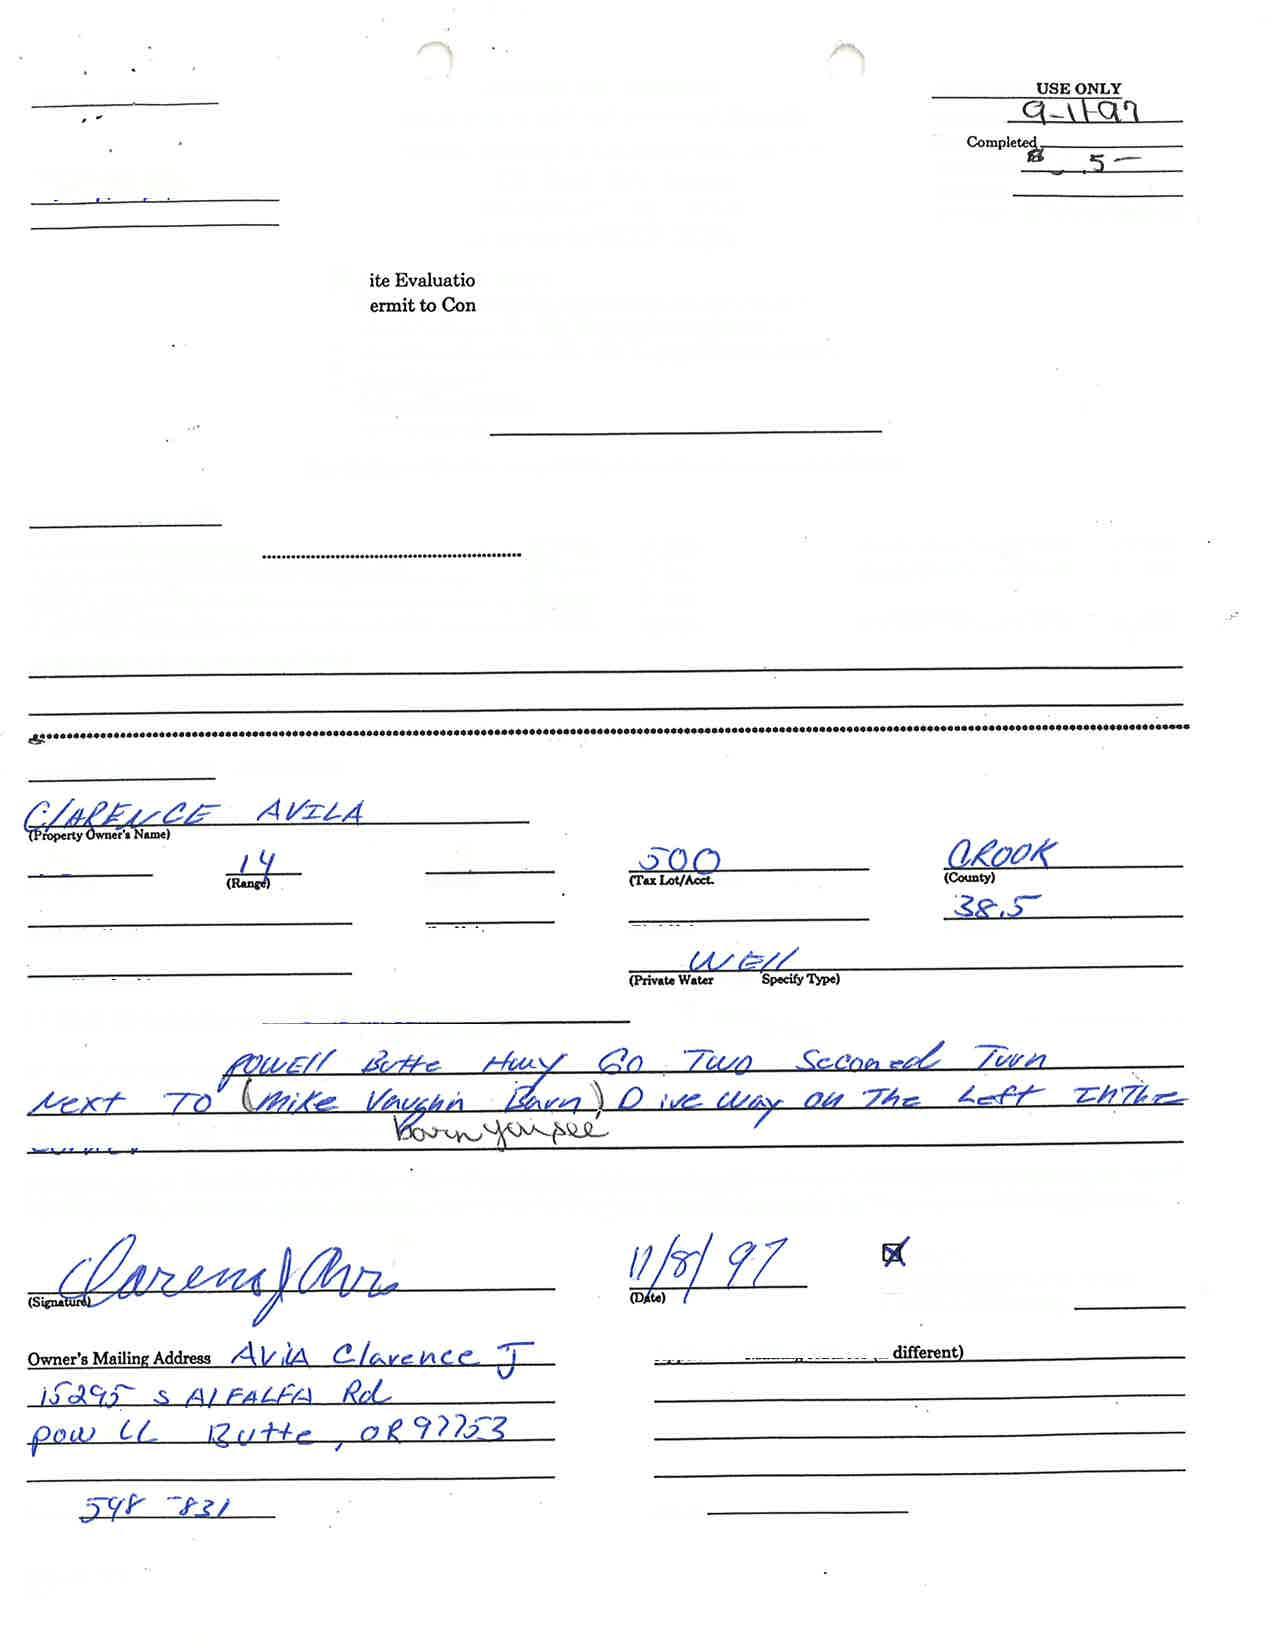 USE ONLY
9-11-97
Completed
$ 5-
ite Evaluatio
ermit to Con
ClARENCE AVILA
(Property Owner's Name)
14 500 CROOK
(Range) (Tax Lot/Acct. (County)
38.5
WEll
(Private Water Specify Type)
POWEll Butte Hwy Go Two Seconed Turn
Next TO (Mike Vaughn Barn) Diveway on The Left InThe
barn you see
11/8/97
(Signature) (Date)
Owner's Mailing Address AvilA Clarence J different)
15295 S AlFALFA Rd
pow LL Butte, OR 97753
548-831